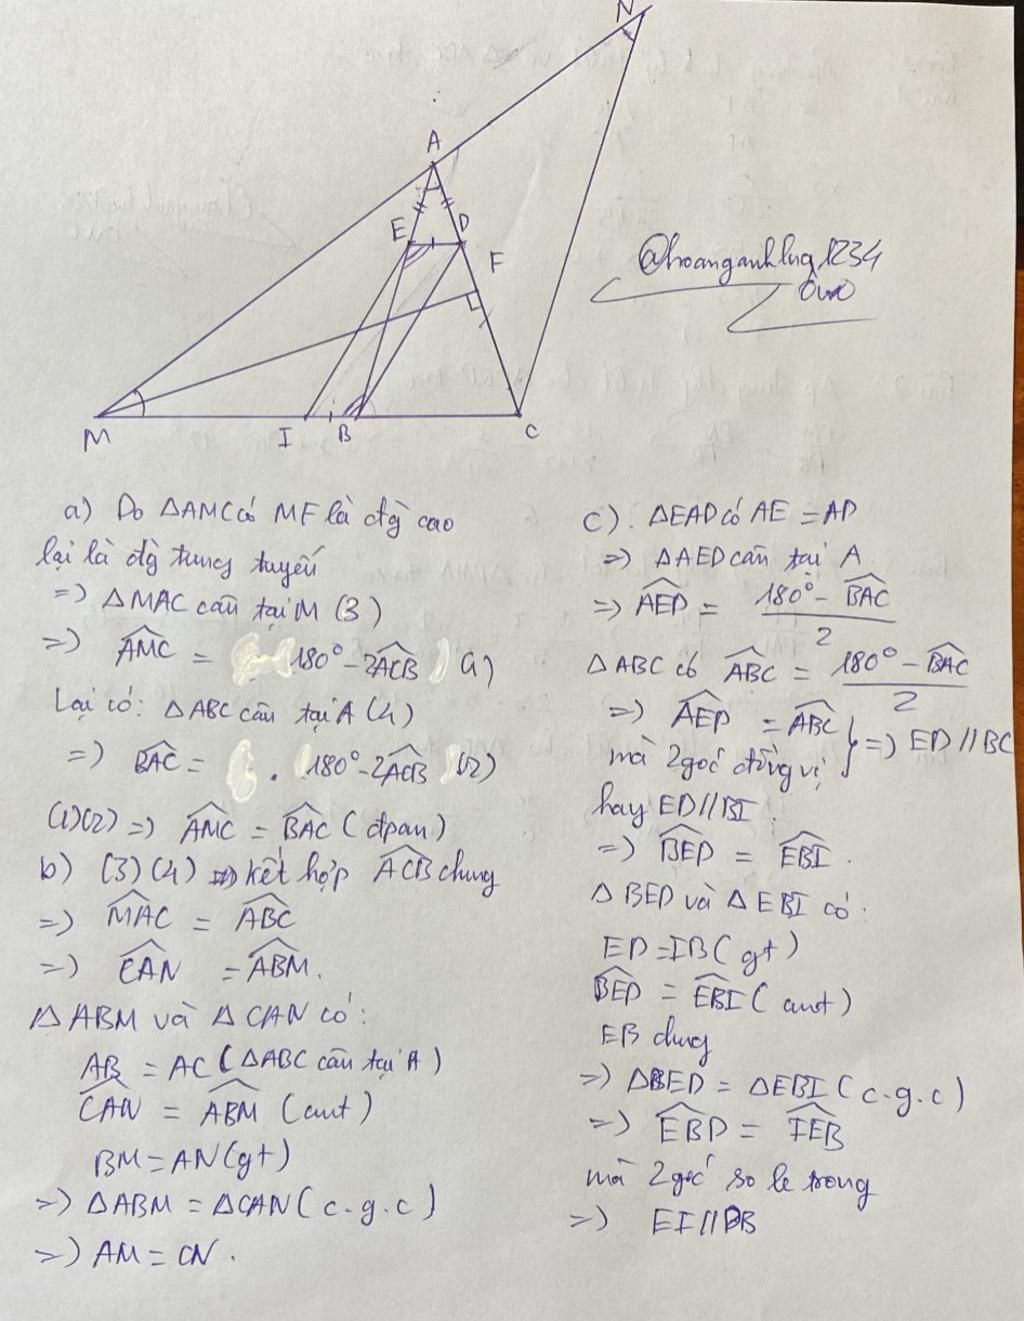 N
A
E
D
F
M
I
B
C
@hoanganhlnq1234
OwO
a) Do ΔAMC có MF là đg cao
lại là đg trung tuyến
=> ΔMAC cân tại M (3)
=> \widehat{AMC} = 180° - 2\widehat{ACB} (1)
Lại có: ΔABC cân tại A (4)
=> \widehat{BAC} = 180° - 2\widehat{ACB} (2)
(1)(2) => \widehat{AMC} = \widehat{BAC} (đpcm)
b) (3)(4) => kết hợp \widehat{ACB} chung
=> \widehat{MAC} = \widehat{ABC}
=> \widehat{CAN} = \widehat{ABM}.
ΔABM và ΔCAN có:
AB = AC (ΔABC cân tại A)
\widehat{CAN} = \widehat{ABM} (cmt)
BM = AN (gt)
=> ΔABM = ΔCAN (c.g.c)
=> AM = CN.
c). ΔEAD có AE = AD
=> ΔAED cân tại A
=> \widehat{AED} = \frac{180° - \widehat{BAC}}{2}
ΔABC có \widehat{ABC} = \frac{180° - \widehat{BAC}}{2}
=> \widehat{AED} = \widehat{ABC}
mà 2 góc đồng vị } => ED // BC
hay ED // BI.
=> \widehat{BED} = \widehat{EBI}.
ΔBED và ΔEBI có:
ED = IB (gt)
\widehat{BED} = \widehat{EBI} (cmt)
EB chung
=> ΔBED = ΔEBI (c.g.c)
=> \widehat{EBD} = \widehat{IEB}
mà 2 góc so le trong
=> EI // DB